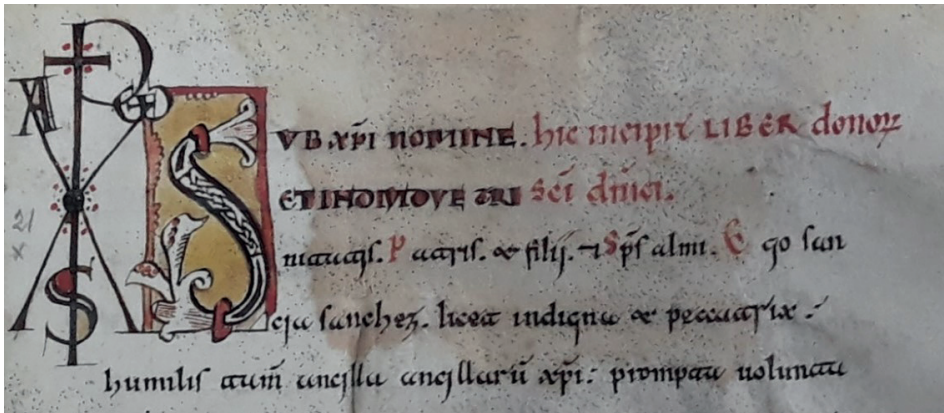 SVB xp̄i NOMINE. hic incipit LIBER donoꝝ
ET INDIVIDVE TRI Sc̄i dn̄ici.
nitatis. Patris. & filij. & Sp̄s almi. Ego san
cia sanchez. licet indigna & peccatrix.
humilis tam̄ ancilla ancillarū xp̄i: prompta uolunta
21
x